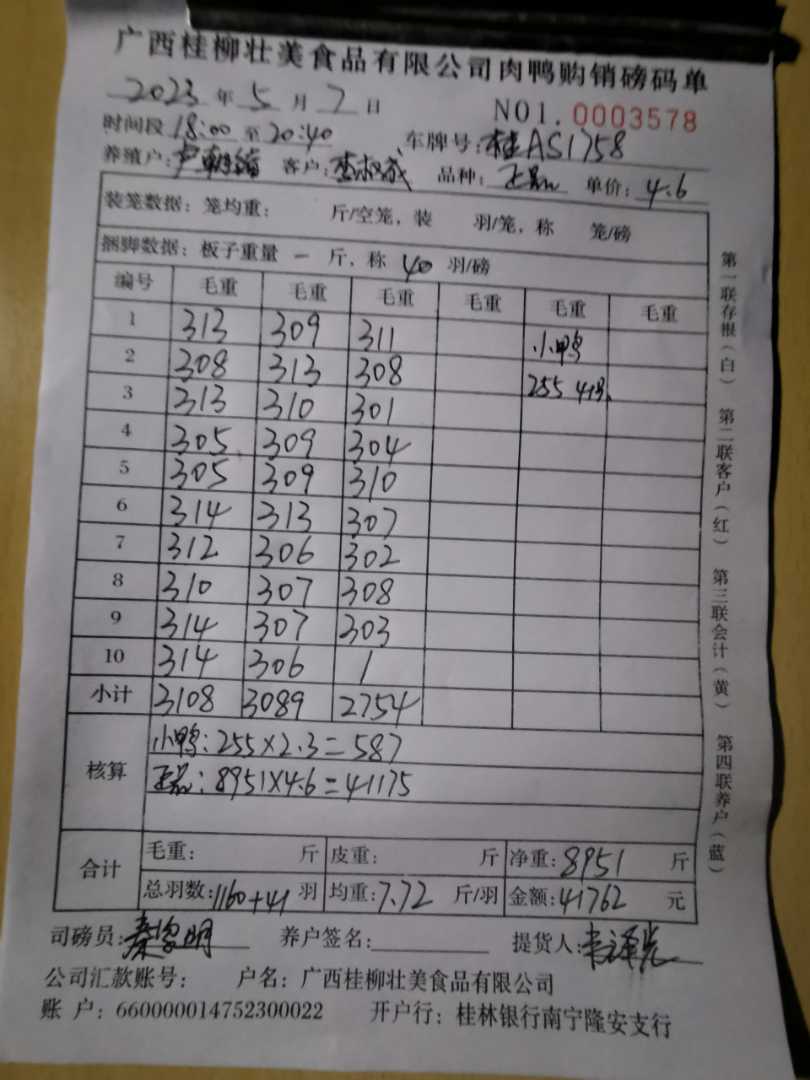 广西桂柳壮美食品有限公司肉鸭购销磅码单
2023 年 5 月 2 日 NO1. 0003578
时间段 18:00 至 20:40 车牌号: 桂AS1758
养殖户: 客户: 李叔成 品种: 正品 单价: 4.6
装笼数据: 笼均重: 斤/空笼, 装 羽/笼, 称 笼/磅
捆脚数据: 板子重量 一 斤, 称 40 羽/磅
编号 毛重 毛重 毛重 毛重 毛重 毛重
1 313 309 311 小鸭
2 308 313 308 255 41羽
3 313 310 301
4 305 309 304
5 305 309 310
6 314 313 307
7 312 306 302
8 310 307 308
9 314 307 303
10 314 306 /
小计 3108 3089 2754
核算 小鸭: 255×2.3=587
正品: 8951×4.6=41175
合计 毛重: 斤 皮重: 斤 净重: 8951 斤
总羽数: 1160+41 羽 均重: 7.72 斤/羽 金额: 41762 元
司磅员: 养户签名: 提货人:
公司汇款账号: 户名: 广西桂柳壮美食品有限公司
账 户: 660000014752300022 开户行: 桂林银行南宁隆安支行
第一联存根(白) 第二联客户(红) 第三联会计(黄) 第四联养户(蓝)